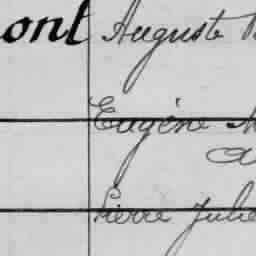 ont Auguste
Eugène
Pierre Julie